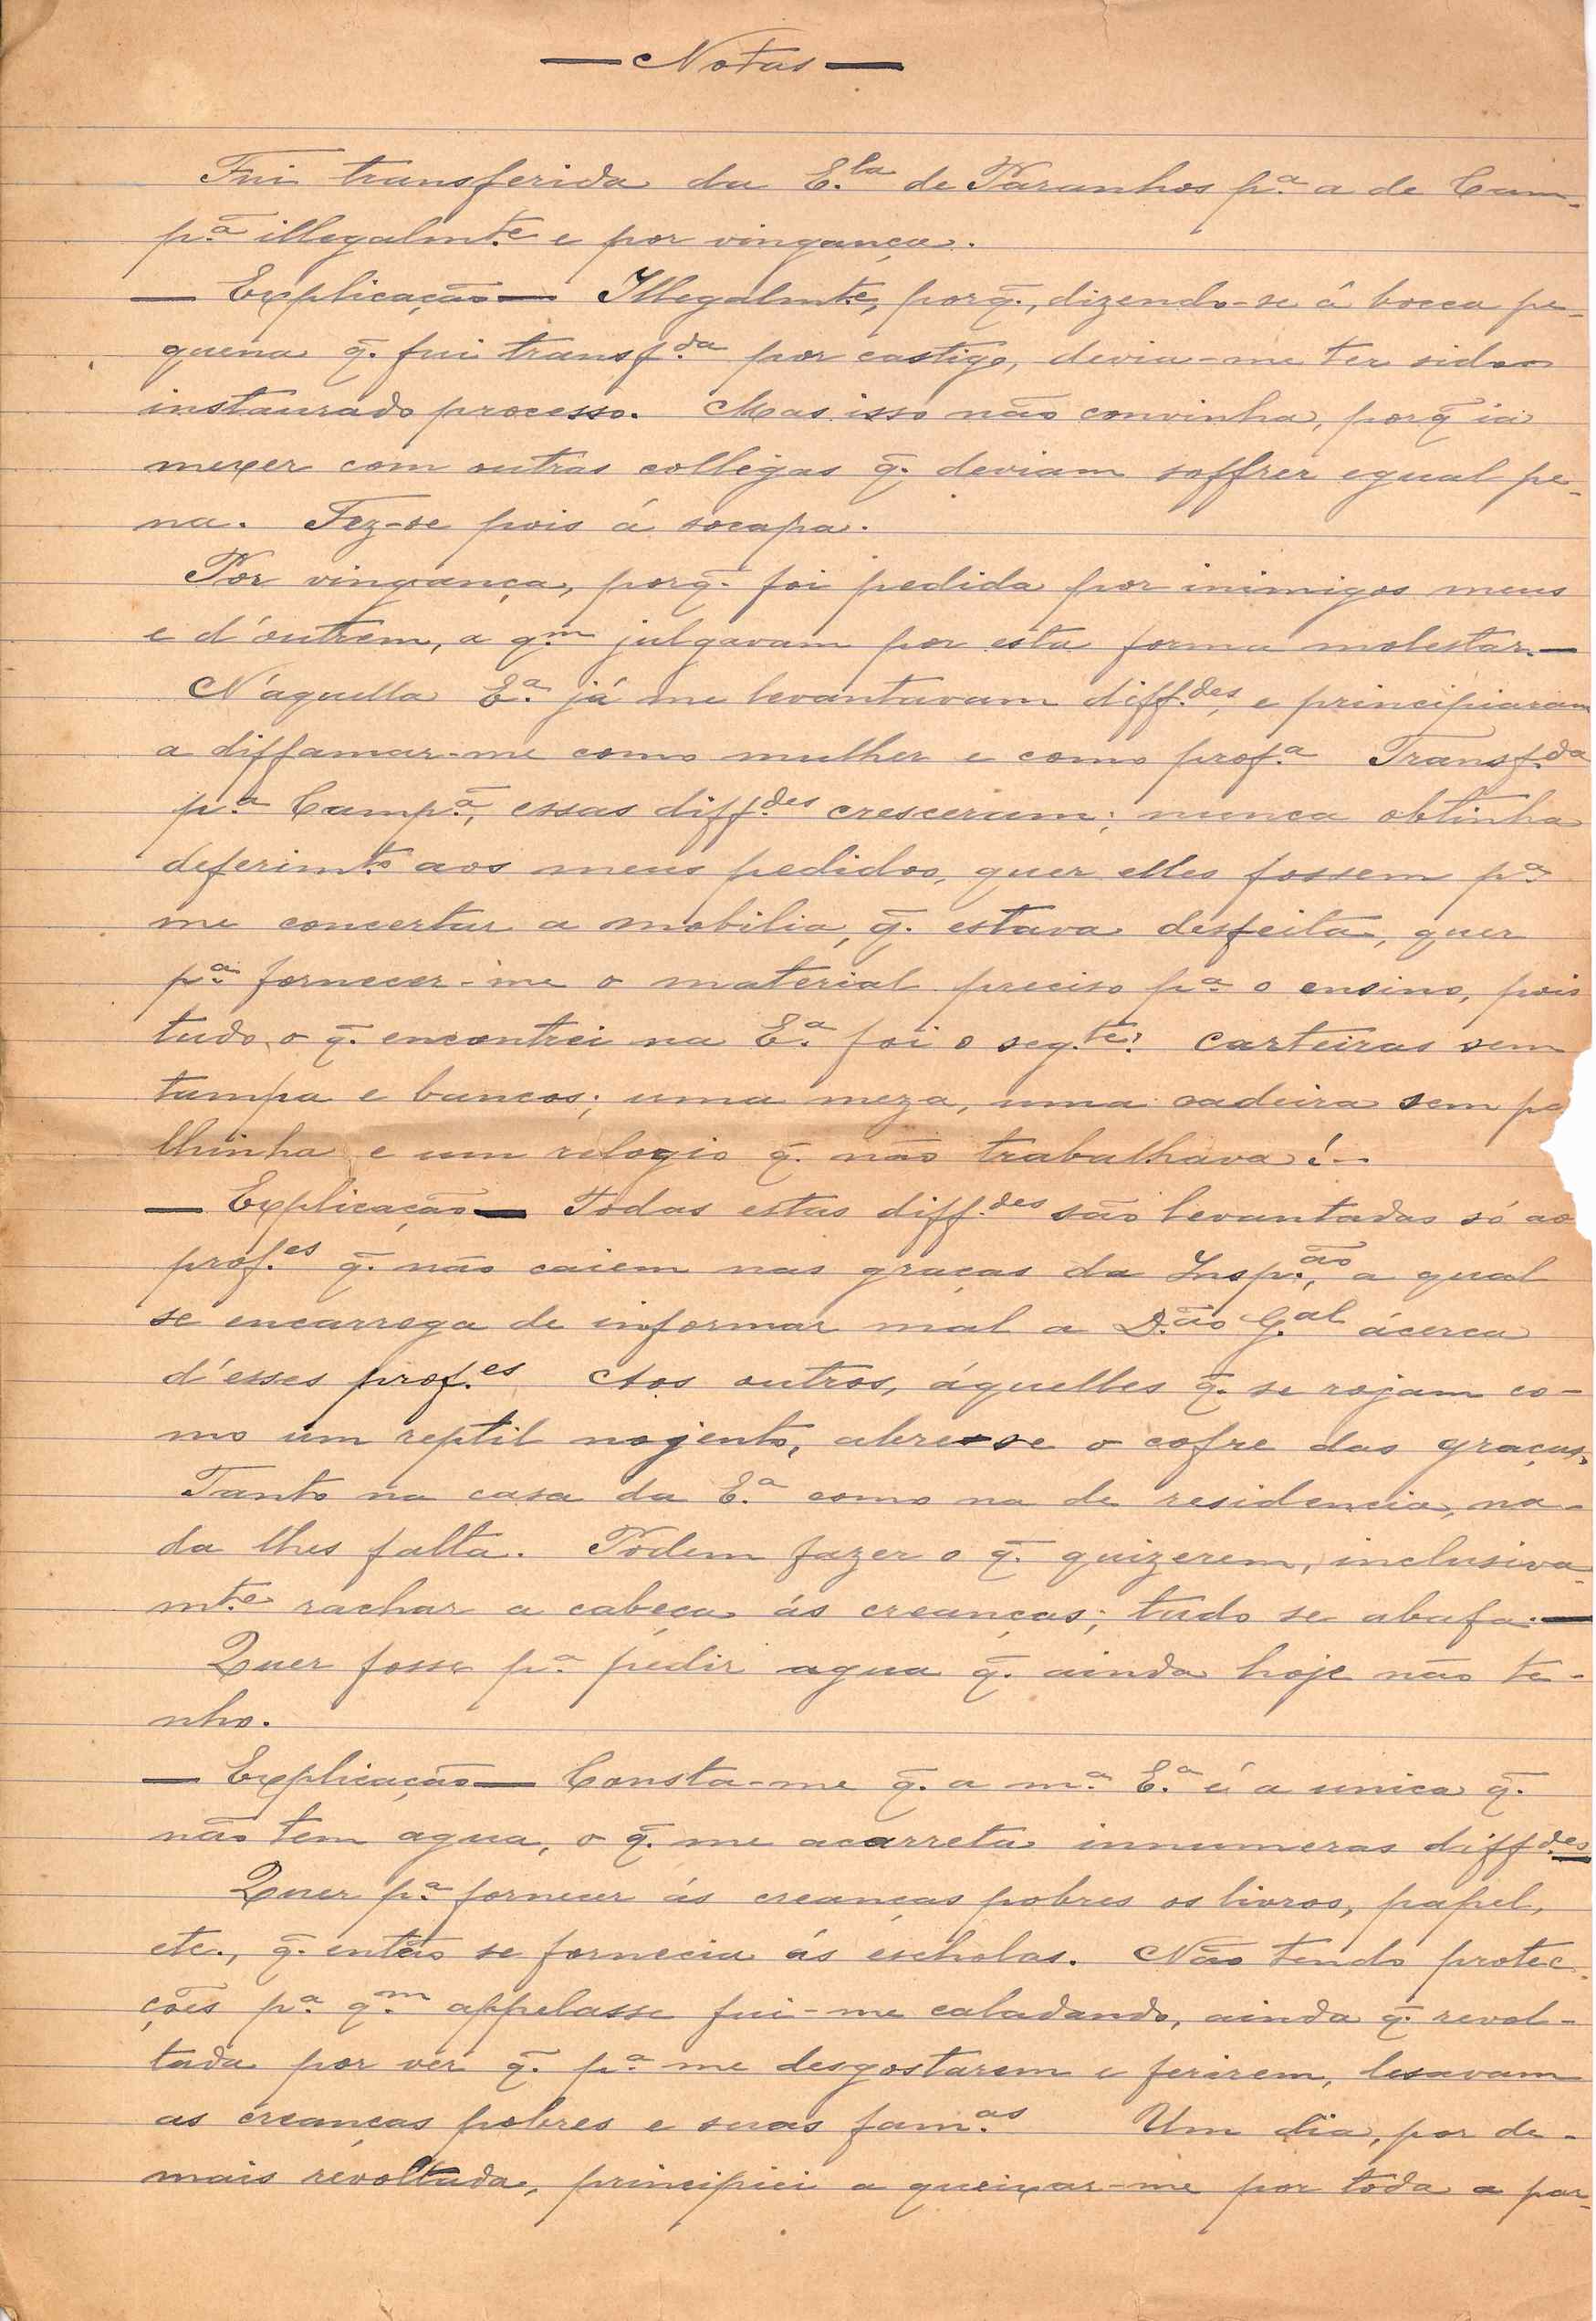 — Notas —
Fui transferida da E.la de Paranhos p.ª a de Cam-
p.ã illegalmt.e e por vingança.
— Explicação — Illegalmt.e, porq̃., dizendo-se á bocca pe-
quena q̃. fui transf.da por castigo, devia-me ter sido
instaurado processo. Mas isso não convinha, porq̃ ia
mexer com outras collegas q̃. deviam soffrer egual pe-
na. Fez-se pois á socapa.
Por vingança, porq̃. foi pedida por inimigos meus
e d'outrem, a q.m julgavam por esta forma molestar. —
N'aquella E.ª já me levantavam diff.des, e principiaram
a diffamar-me como mulher e como prof.ª Transf.da
p.ª Camp.ã, essas diff.des cresceram; nunca obtinha
deferimt.o aos meus pedidos, quer elles fossem p.ª
me concertar a mobilia, q̃. estava desfeita, quer
p.ª fornecer-me o material preciso p.ª o ensino, pois
tudo o q̃. encontrei na E.ª foi o seg.te: carteiras sem
tampa e bancos; uma meza, uma cadeira sem pa
lhinha e um relogio q̃. não trabalhava!..
— Explicação — Todas estas diff.des são levantadas só ao
prof.es q̃. não caiem nas graças da Insp.ão, a qual
se encarrega de informar mal a D.ão G.al ácerca
d'esses prof.es Aos outros, áquelles q̃. se rojam co-
mo um reptil nojento, abre-se o cofre das graças.
Tanto na casa da E.ª como na de residencia, na-
da lhes falta. Podem fazer o q̃. quizerem, inclusiva-
mt.e rachar a cabeça ás creanças; tudo se abafa. —
Quer fosse p.ª pedir agua q̃. ainda hoje não te-
nho.
— Explicação — Consta-me q̃. a m.ª E.ª é a unica q̃.
não tem agua, o q̃. me acarreta innumeras diff.des
Quer p.ª fornecer ás creanças pobres os livros, papel,
etc., q̃. então se fornecia ás escholas. Não tendo protec-
ções p.ª q.m appelasse fui-me caladando, ainda q̃. revol-
tada por vêr q̃. p.ª me desgostarem e ferirem, lesavam
as creanças pobres e suas fam.as Um dia, por de-
mais revoltada, principiei a queixar-me por toda a par-